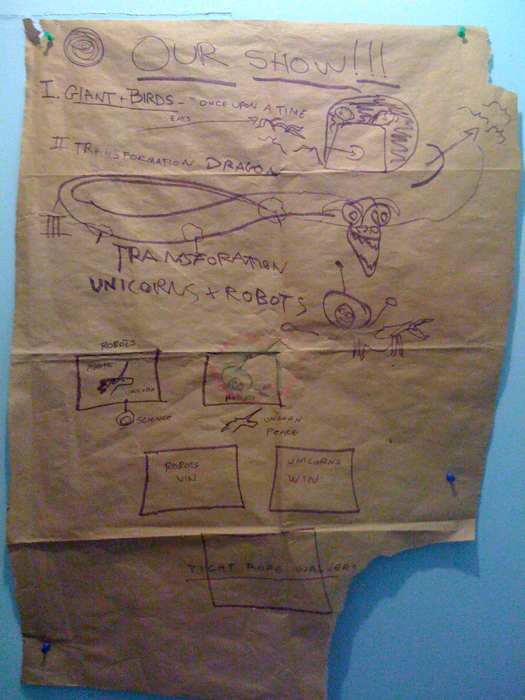 OUR SHOW!!!
I. GIANT + BIRDS - "ONCE UPON A TIME
ENDS
II TRANSFORMATION DRAGON
III
TRANSFORATION
UNICORNS + ROBOTS
ROBOTS
SCIENCE
PEACE
ROBOTS
WIN
UNICORNS
WIN
TIGHT ROPE WALKERS